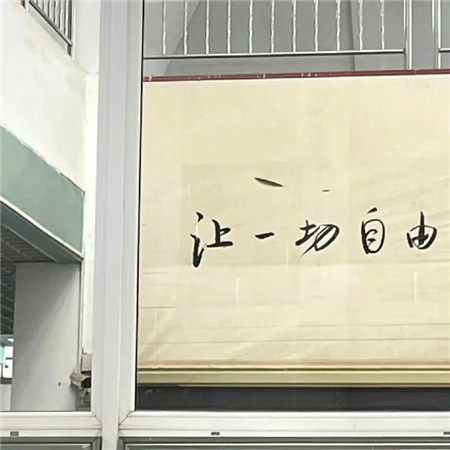 让一切自由